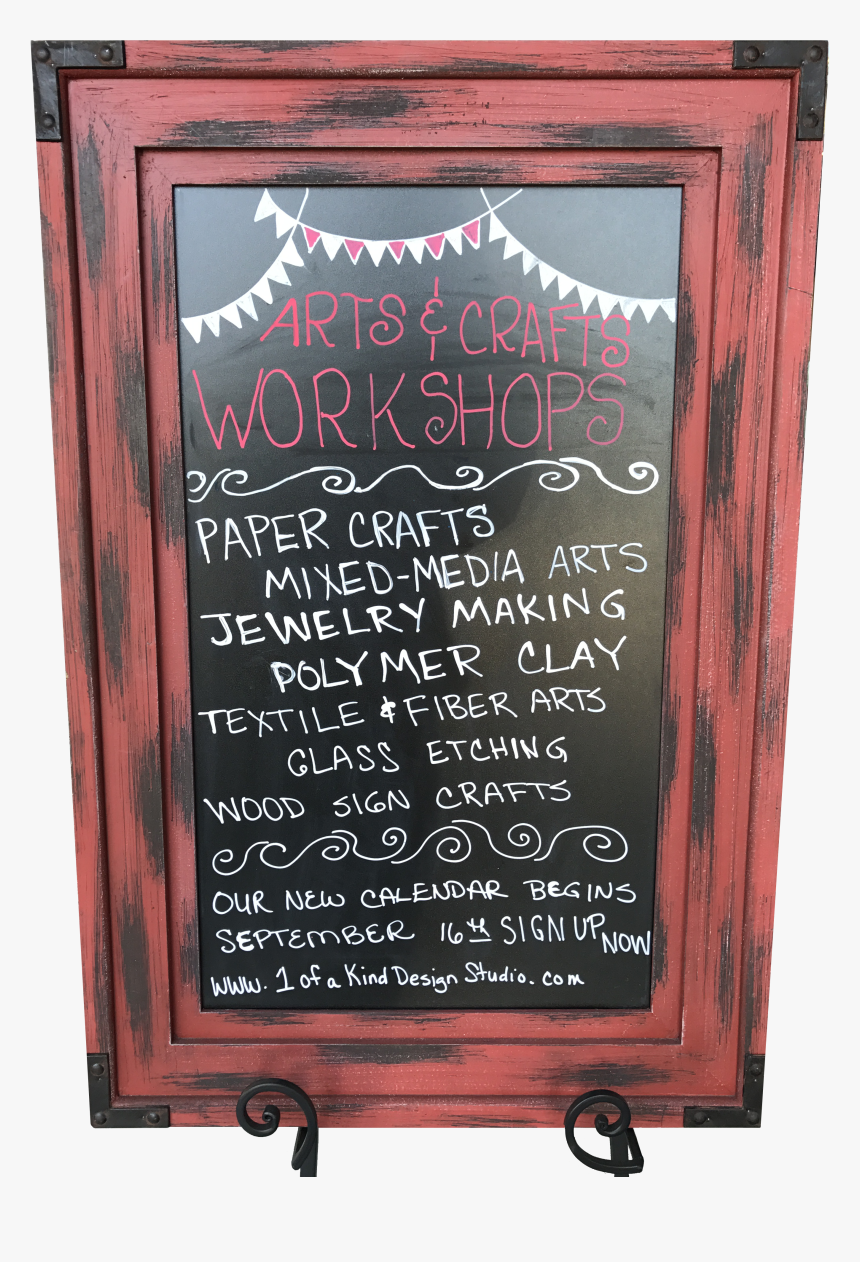 ARTS & CRAFTS
WORKSHOPS
PAPER CRAFTS
MIXED-MEDIA ARTS
JEWELRY MAKING
POLYMER CLAY
TEXTILE & FIBER ARTS
GLASS ETCHING
WOOD SIGN CRAFTS
OUR NEW CALENDAR BEGINS
SEPTEMBER 16th SIGN UP NOW
www.1ofaKindDesignStudio.com